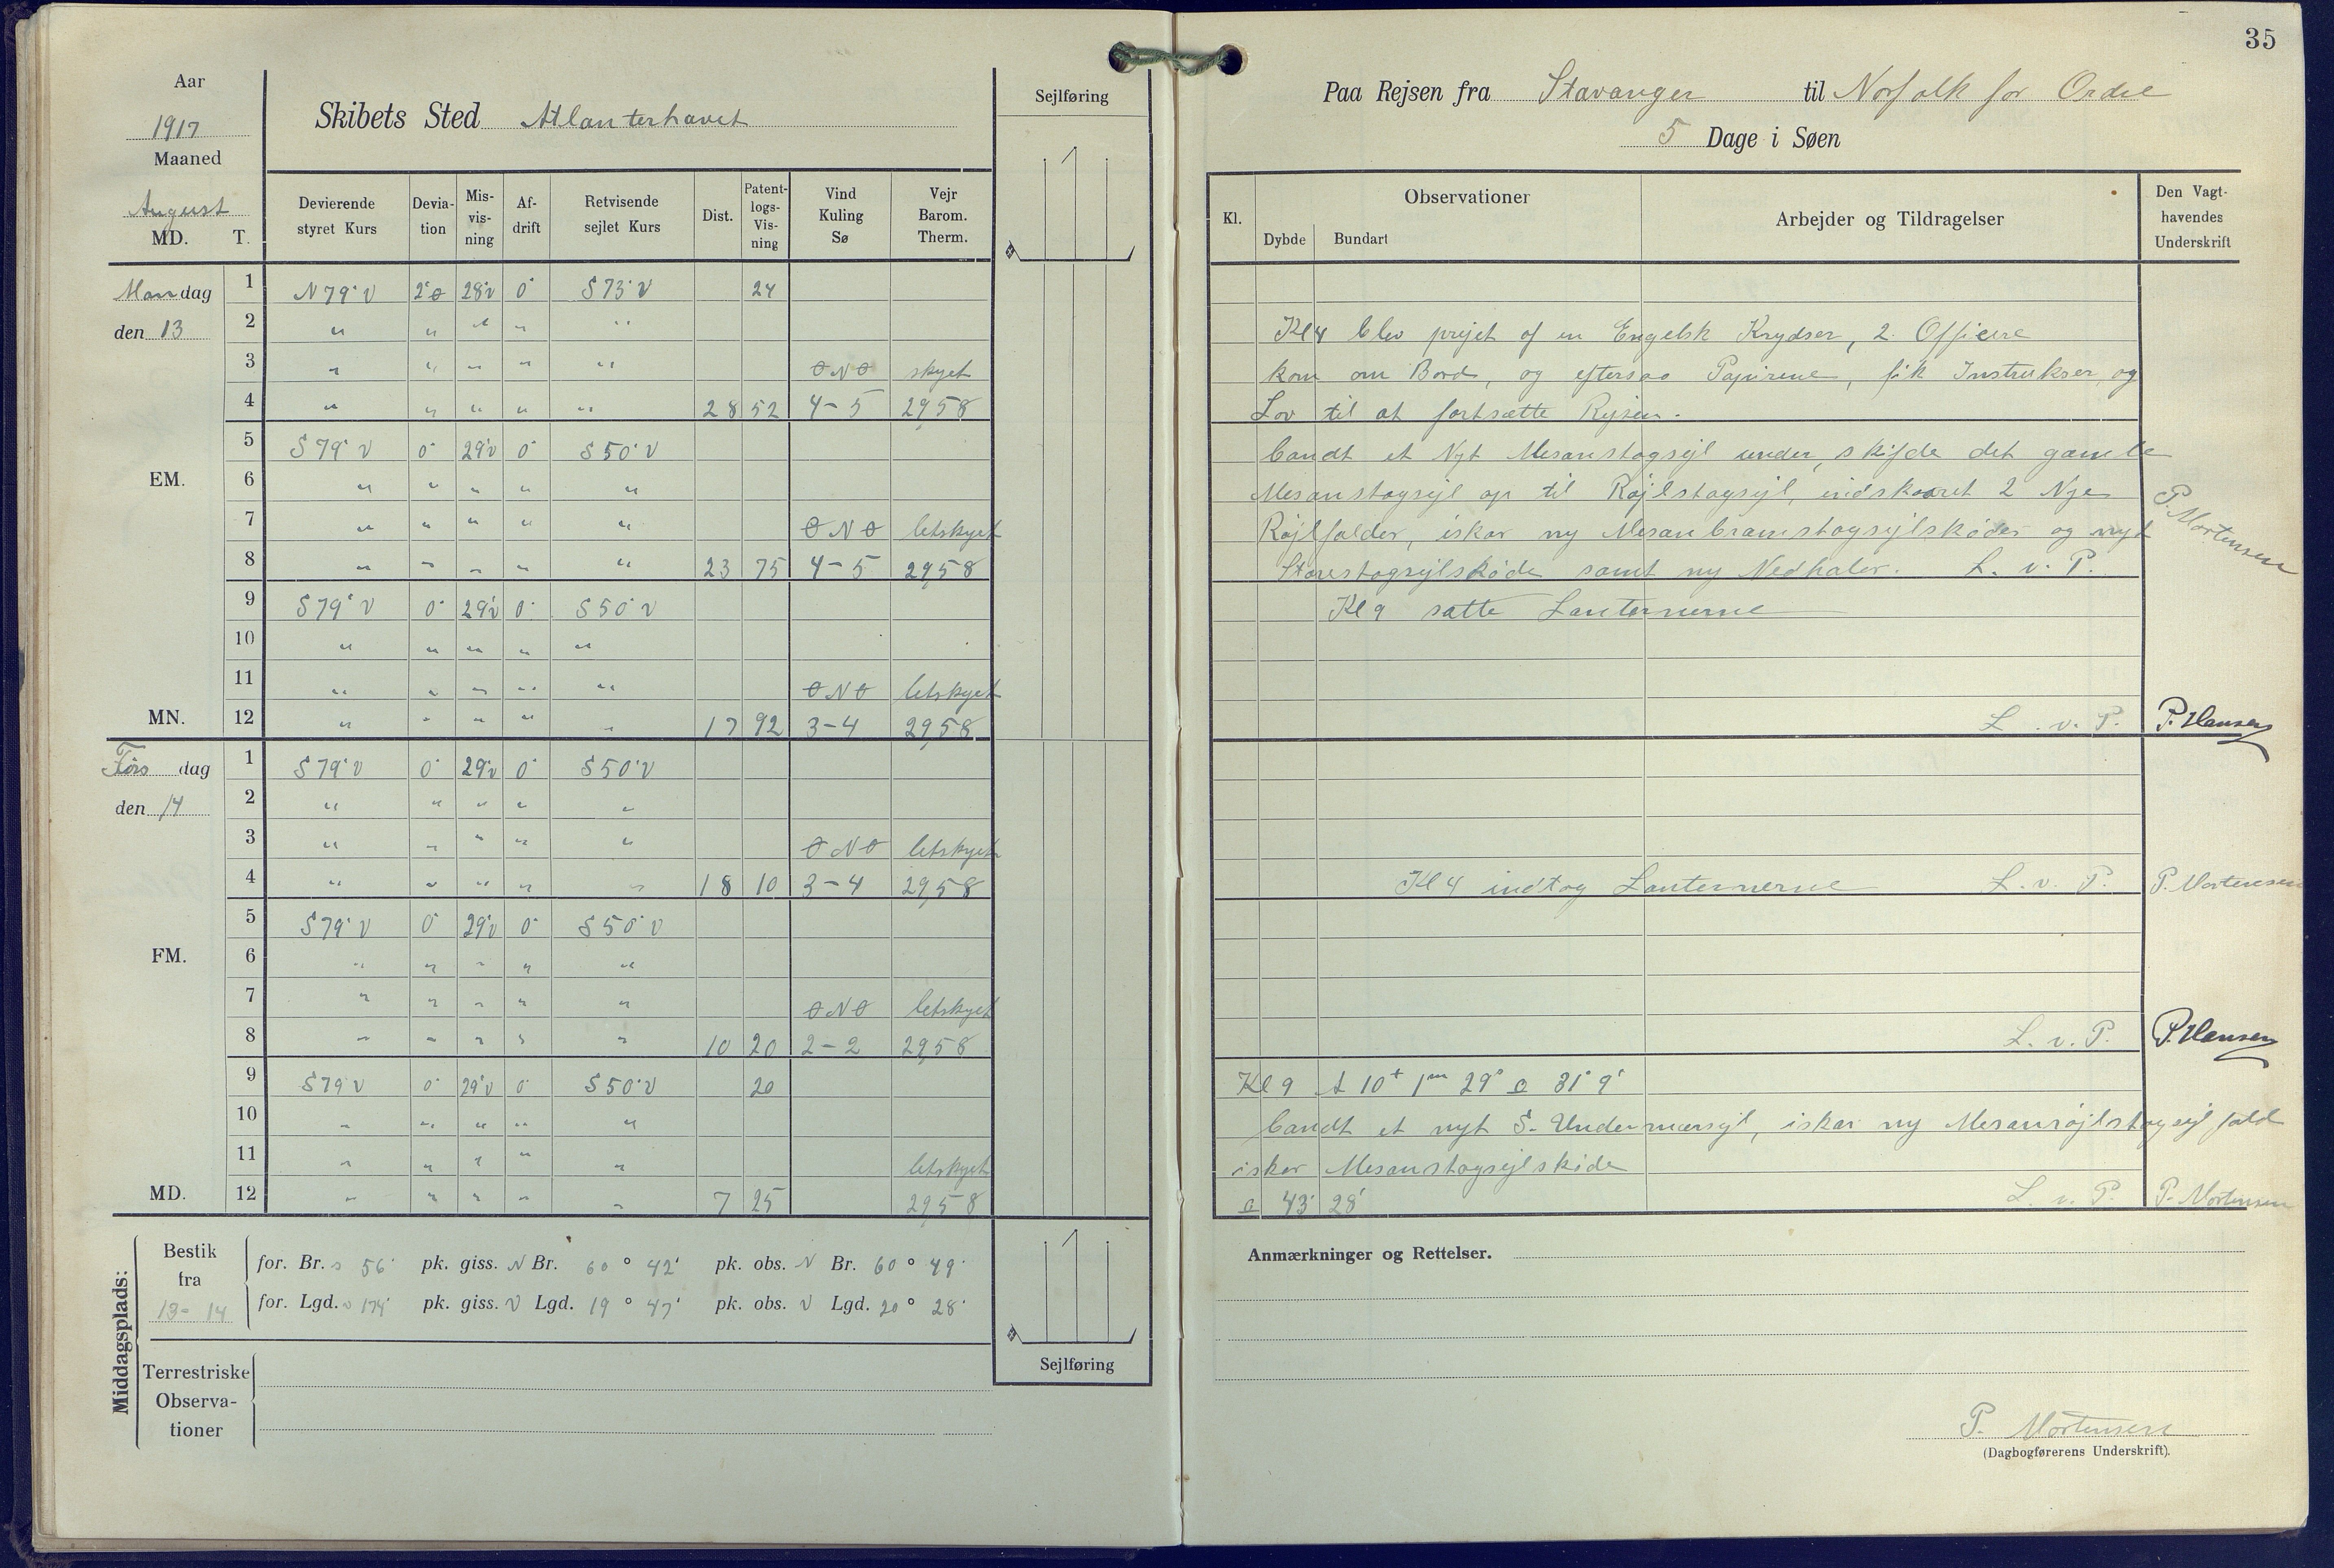 Aar
1917
Maaned
August
MD. T.
Skibets Sted Atlanterhavet
Sejlføring
Devierende styret Kurs
Deviation
Misvisning
Afdrift
Retvisende sejlet Kurs
Dist.
Patentlogs-Visning
Vind Kuling Sø
Vejr Barom. Therm.
Mandag
den 13
1 N79°V 2°Ø 28°V 0° S73°V 24
2 " " " " "
3 " " " " " ONO skyet
4 " " " " " 28 52 4-5 29,58
5 S79°V 0° 29°V 0° S50°V
EM. 6 " " " " "
7 " " " " " ONO letskyet
8 " " " " " 23 75 4-5 29,58
9 S79°V 0° 29°V 0° S50°V
10 " " " " "
11 " " " " " ONO letskyet
MN. 12 " " " " " 17 92 3-4 29,58
Tirsdag
den 14
1 S79°V 0° 29°V 0° S50°V
2 " " " " "
3 " " " " " ONO letskyet
4 " " " " " 18 10 3-4 29,58
5 S79°V 0° 29°V 0° S50°V
FM. 6 " " " " "
7 " " " " " ONO letskyet
8 " " " " " 10 20 2-2 29,58
9 S79°V 0° 29°V 0° S50°V 20
10 " " " " "
11 " " " " " letskyet
MD. 12 " " " " " 7 25 29,58
Middagsplads:
Bestik fra 13-14
for. Br. S 56' pk. giss. N Br. 60° 42' pk. obs. N Br. 60° 49'
for. Lgd. V 174' pk. giss. V Lgd. 19° 47' pk. obs. V Lgd. 20° 28'
Terrestriske Observationer
Sejlføring
35
Paa Rejsen fra Stavanger til Norfolk for Ordre
5 Dage i Søen
Kl.
Observationer
Dybde Bundart
Arbejder og Tildragelser
Den Vagthavendes Underskrift
Kl 4 blev prejet af en Engelsk Krydser, 2 Officere
kom om Bord, og eftersaa Papirene, fik Instrukser og
Lov til at fortsætte Rejsen.
bandt et Nyt Mesanstagsejl under, skifde det gamle
Mesanstagsejl op til Røjlstagsejl, indskaaret 2 Nye
Røjlfalder, iskar ny Mesanbramstagsejlskøder og nyt
Storestagsejlskøde samt ny Nedhaler. L. v. P.
P. Mortensen
Kl 9 satte Lanternerne
L. v. P. P. Hansen
Kl 4 indtog Lanternerne L. v. P. P. Mortensen
L. v. P. P. Hansen
Kl 9 10t 1m 29s 31° 9'
bandt et nyt S-Undermærsejl, iskar ny Mesanrøjlstagsejlfald
iskar Mesanstagsejlskøde
43° 28' L. v. P. P. Mortensen
Anmærkninger og Rettelser.
P. Mortensen
(Dagbogførerens Underskrift).